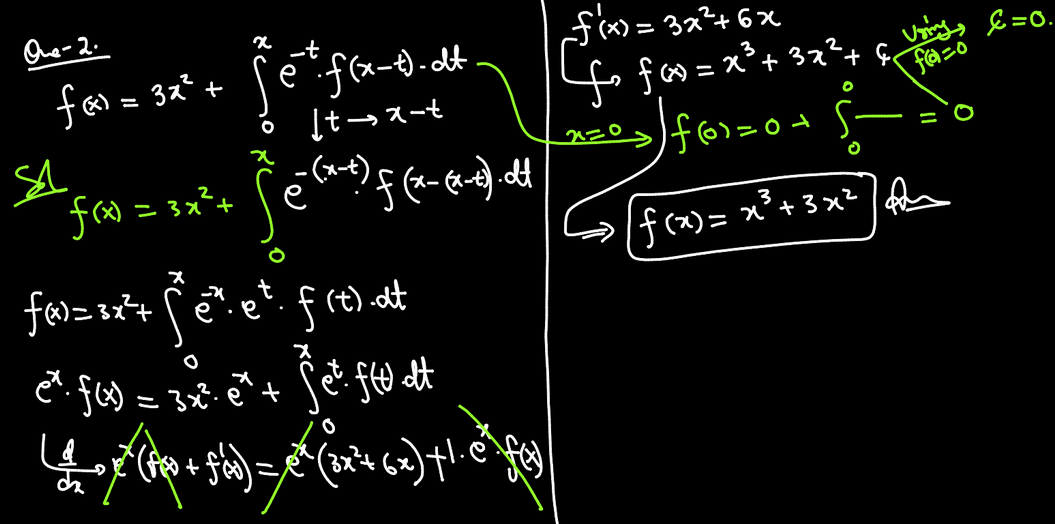 Que-2.
f(x) = 3x² + ∫₀ˣ e^(-t) · f(x-t) · dt
↓ t → x-t
Sol
f(x) = 3x² + ∫₀ˣ e^(-(x-t)) f(x-(x-t)) · dt
f(x) = 3x² + ∫₀ˣ e^(-x) · e^t · f(t) · dt
e^x · f(x) = 3x² · e^x + ∫₀ˣ e^t · f(t) · dt
d/dx → e^x (f(x) + f'(x)) = e^x (3x² + 6x) + 1 · e^x · f(x)
f'(x) = 3x² + 6x
∫→ f(x) = x³ + 3x² + c
Using f(0)=0 → c = 0.
x=0 → f(0) = 0 + ∫₀⁰ — = 0
⇒ f(x) = x³ + 3x² Ans